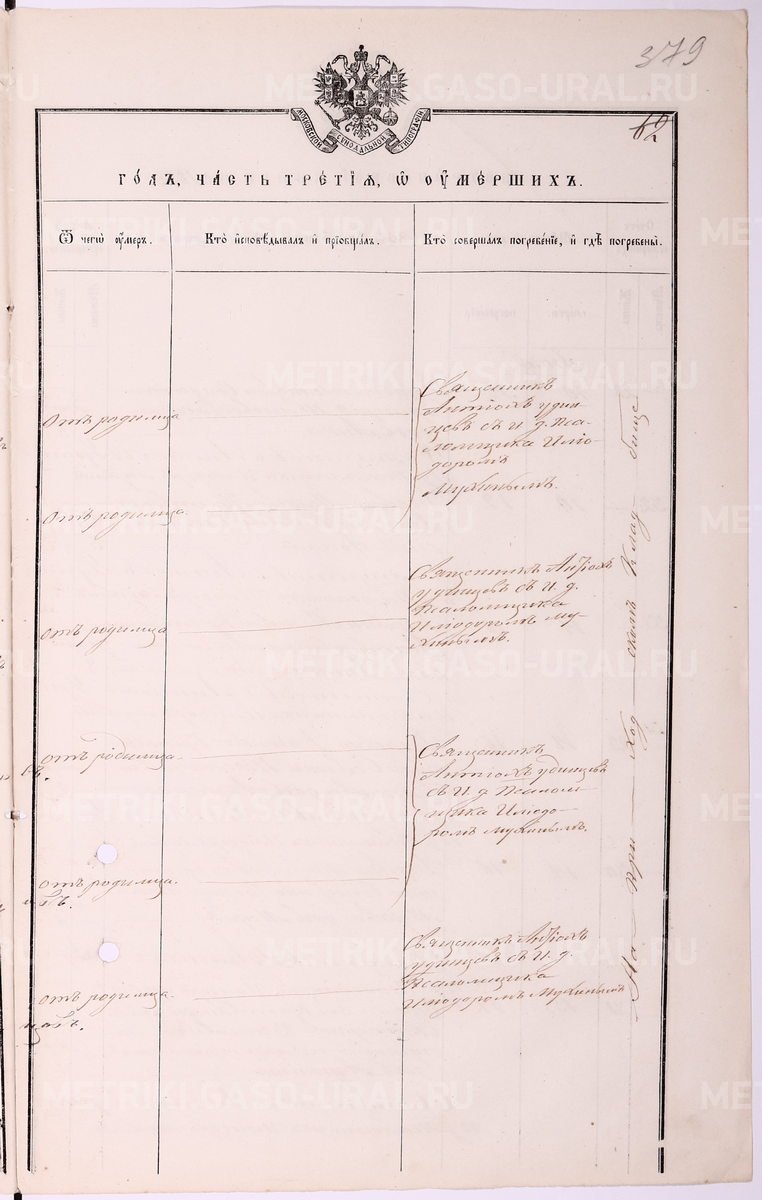 379
62
МОСКОВСКОЙ СѴНОДАЛЬНОЙ ТИПОГРАФІИ
ГО́ДЪ, ЧА́СТЬ ТРЕ́ТІѦ, Ѡ҆ ОУ҆МЕ́РШИХЪ.
Ѿ чегѡ̀ оу҆́меръ.
Кто̀ и҆сповѣ́дывалъ и҆ прїѡбща́лъ.
Кто̀ соверша́лъ погребе́нїе, и҆ гдѣ̀ погребены̀.
отъ родимца
Священникъ
Антіохъ удин-
цевъ съ и. д. Пса-
ломщика Иліо-
доромъ
Мухинымъ.
отъ родимца.
отъ родимца
Священникъ Антіохъ
удинцевъ съ И. д.
Псаломщика
Иліодоромъ Му-
хинымъ.
отъ родимца.
Священникъ
Антіохъ удинцевъ
съ И. д Псалом-
щика Иліодо-
ромъ Мухинымъ.
отъ родимца.
отъ родимца.
Священникъ Антіохъ
удинцевъ съ И. д.
Псаломщика
Иліодоромъ Мухинымъ
На при — ход — скомъ Клад — бище
METRIKI.GASO-URAL.RU